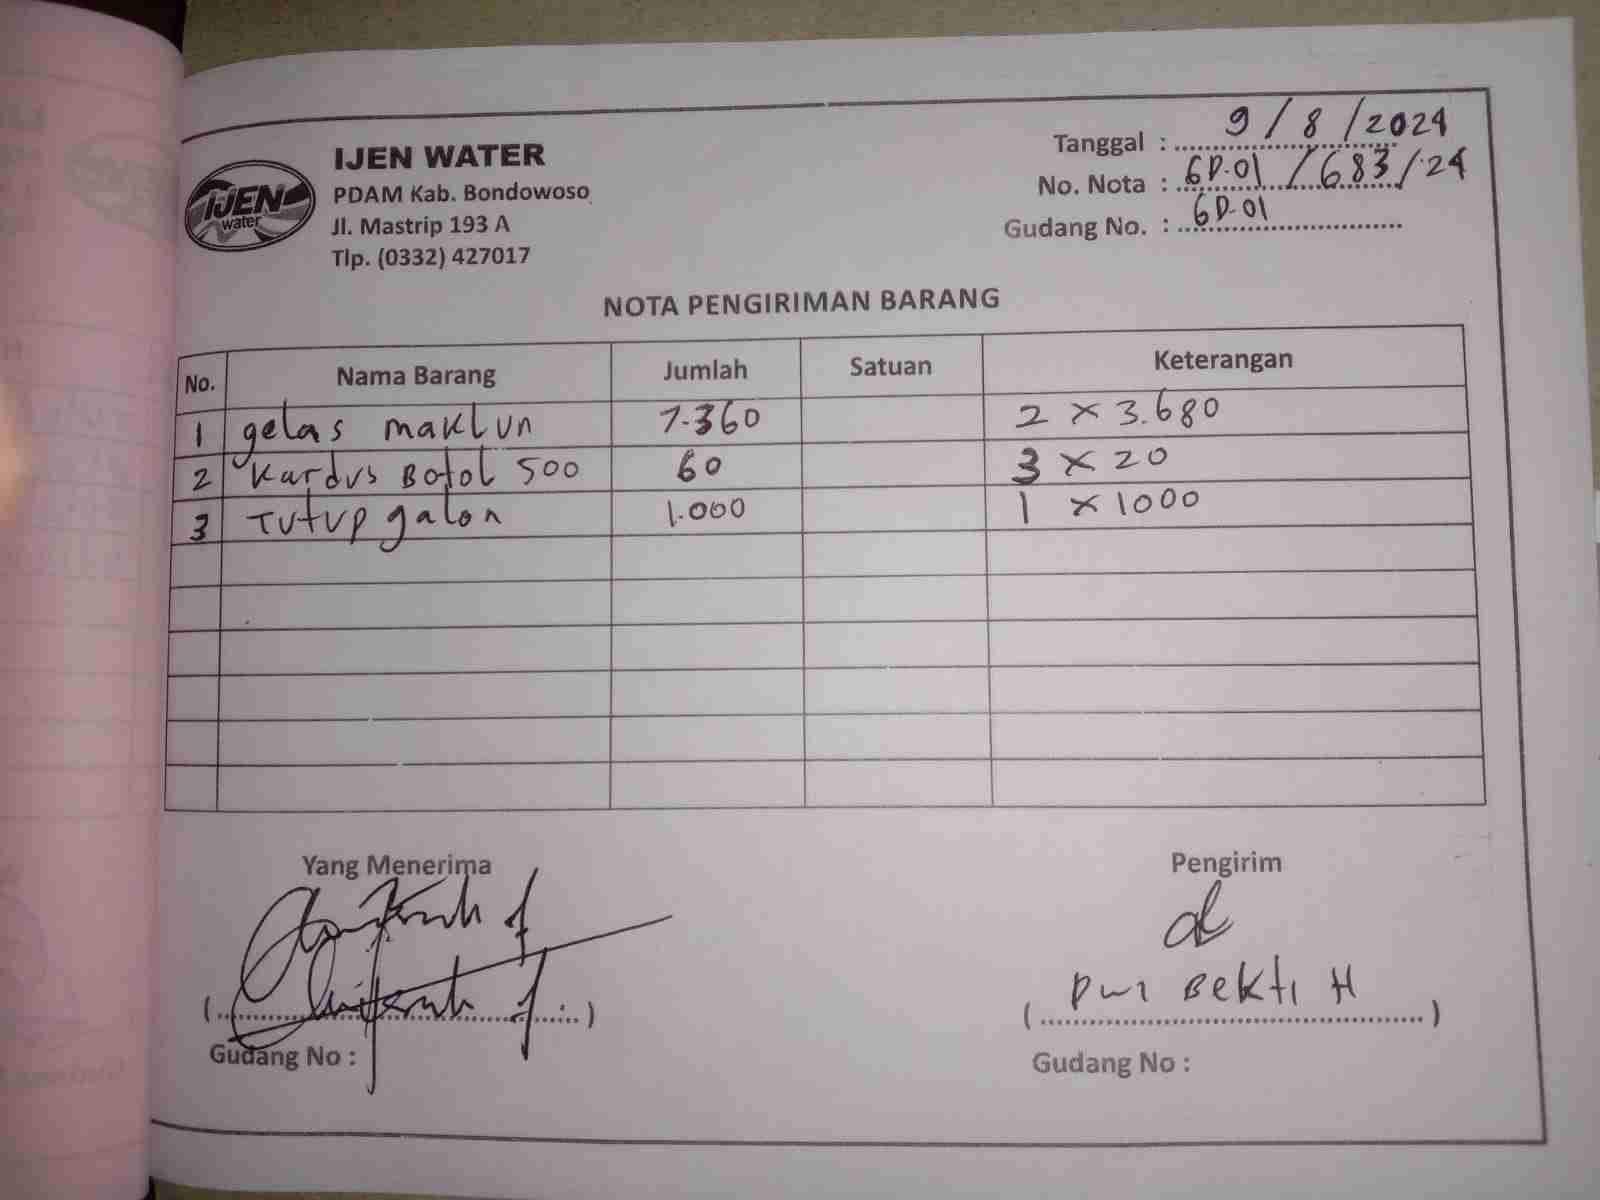 IJEN water
IJEN WATER
PDAM Kab. Bondowoso
Jl. Mastrip 193 A
Tlp. (0332) 427017
Tanggal : 9 / 8 / 2024
No. Nota : GD.01 / 683 / 24
Gudang No. : GD-01
NOTA PENGIRIMAN BARANG
No. Nama Barang Jumlah Satuan Keterangan
1 gelas maklun 7.360 2 x 3.680
2 Kardus Botol 500 60 3 x 20
3 Tutup galon 1.000 1 x 1000
Yang Menerima
Pengirim
( )
( Dwi Bekti H )
Gudang No :
Gudang No :